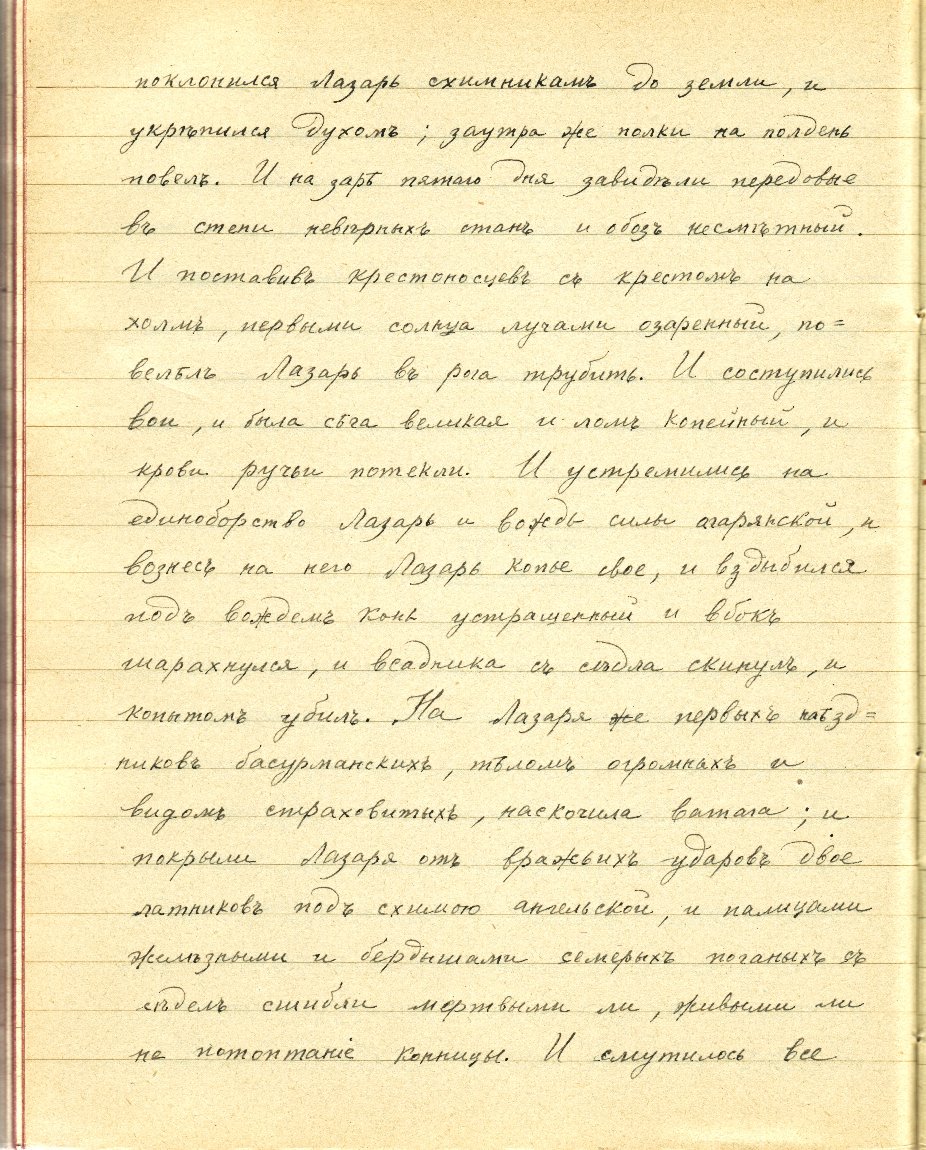 поклонился Лазарь схимникамъ до земли, и
укрѣпился духомъ; заутра же полки на полдень
повелъ. И на зарѣ пятаго дня завидѣли передовые
въ степи невѣрныхъ станъ и обозъ несмѣтный.
И поставивъ крестоносцевъ съ крестомъ на
холмъ, первыми солнца лучами озаренный, по=
велѣлъ Лазарь въ рога трубить. И соступились
вои, и была сѣча великая и ломъ копейный, и
крови ручьи потекли. И устремились на
единоборство Лазарь и вождь силы агарянской, и
вознесъ на него Лазарь копье свое, и вздыбился
подъ вождемъ конь устрашенный и вбокъ
шарахнулся, и всадника съ сѣдла скинулъ, и
копытомъ убилъ. На Лазаря же первыхъ наѣзд=
никовъ басурманскихъ, тѣломъ огромныхъ и
видомъ страховитыхъ, наскочила ватага; и
покрыли Лазаря отъ вражьихъ ударовъ двое
латниковъ подъ схимою ангельской, и палицами
желѣзными и бердышами семерыхъ поганыхъ съ
сѣделъ сшибли мертвыми ли, живыми ли
на потоптаніе конницы. И смутилось все